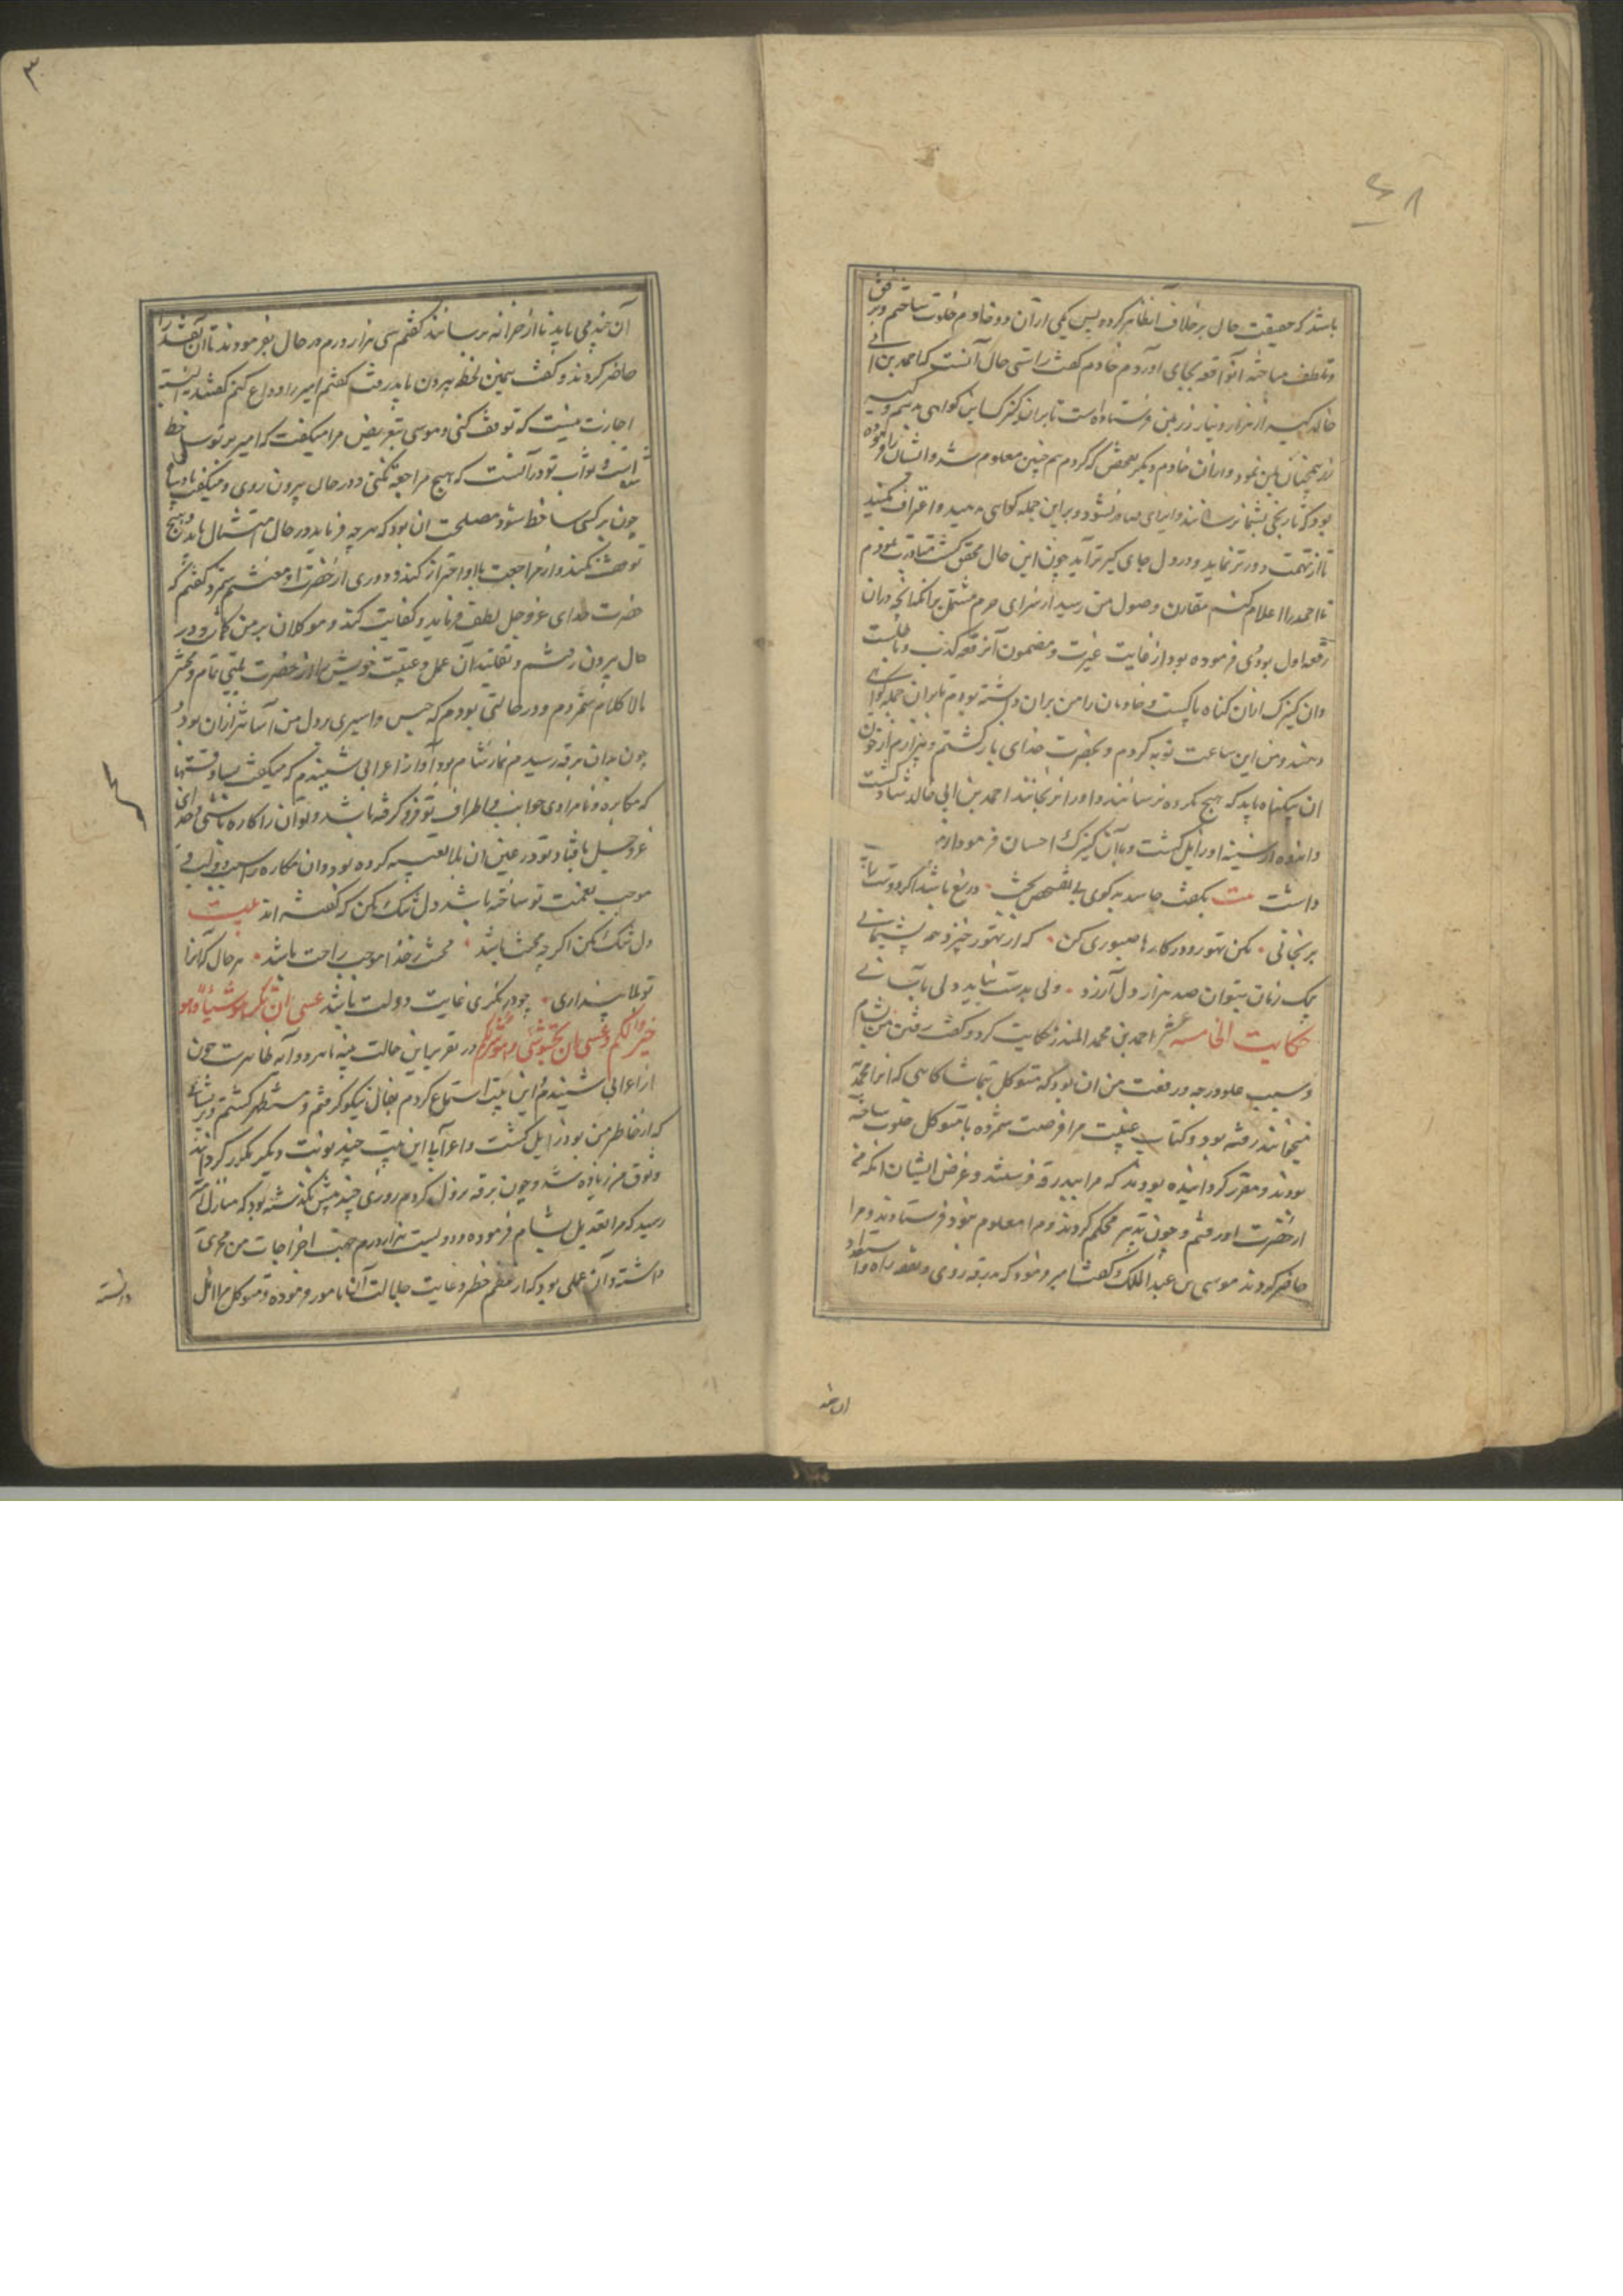 ۴۸
باشد که حقیقت حال بر خلاف آن ظاهر کرده پس یکی از آن دو خادم خلوت ساختم و برفق
و تلطف مباحثه آنواقعه بجای آوردم خادم گفت راستی حال آنست که احمد بن ابی
خالد کیسه از هزار دینار زر بمن فرستاده است تا بران کنیزک این گواهی دهیم و کیسه
زر همچنان بمن نمود و از آن خادم دیگر تفحص که کردم هم چنین معلوم شد و ایشان را فرموده
بود که تا رنجی بشما نرسانند و ایذای صادر نشود و براین جمله گواهی دهید و اعتراف کنید
تا از تهمت دورتر نماید و در دل جای گیرتر آید چون این حال محقق گشت مبادرت نمودم
تا احمد را اعلام کنم مقارن وصول من رسید از سرای حرم مشتمل بر آنکه آنچه در آن
رقعه اول بودی فرموده بود از غایت غیرت و مضمون آن رقعه کذب و باطلست
و آن کنیزک از آن گناه پاکست و خادمان را من بران داشته بودم تا بران جمله گواهی
دهند و من این ساعت توبه کردم و بحضرت خدای بازگشتم و بیزارم از خون
آن بیگناه باید که هیچ مکروه نرسانند و او را نرنجانند احمد بن ابی خالد شاد گشت
و اندوه از سینه او زایل گشت و با آن کنیزک احسان فرمود
داشت بیت بگفت حاسد بدگوی بی تفحص بحث • دریغ باشد اگر دوستان
برنجانی • مکن تهور و در کارها صبوری کن • که از تهور خیزد همه پشیمانی
بیک زمان بتوان صد هزار دل آزرد • ولی بدست نیاید دلی بآسانی
حکایت الخامسه عشر احمد بن محمد المدبر حکایت کرد و گفت رفتن من بشام
و سبب علو درجه و رفعت من آن بود که متوکل بتماشاگاهی که آنرا محمدیه
میخوانند رفته بود و کتاب غیبت مرا فرصت شمرده با متوکل خلوت ساخته
بودند و مقرر گردانیده بودند که مرا ببدرقه فرستند و غرض ایشان آنکه من
از حضرت او رفتم و چون تدبیر محکم کردند و مرا معلوم نبود فرستادند و مرا
حاضر کردند موسی بن عبدالملک گفت امیر فرمود که برقه روی و بتفقد راه و استعداد
آن چند
۳
آن چند می باید تا از خزانه برسانند گفتم سی هزار درم در حال بفرمودند تا آن نقد را
حاضر کردند و گفت همین لحظه بیرون باید رفت گفتم امیر را وداع کنم گفتند البته
اجازت نیست که توقف کنی و موسی بتعریض مرا میگفت که امیر بر تو ساخط
است و ثواب تو در آنست که هیچ مراجعه نکنی و در حال بیرون روی و میگفت پادشاه
چون بر کسی ساخط شود مصلحت آن بود که هرچه فرماید در حال امتثال باید و هیچ
توقف نکند و از مراجعت با او احتراز کند و دوری از حضرت او مغتنم شمرد و گفتم که
حضرت خدای عزوجل لطف فرماید و کفایت کند و موکلان بر من گماشته و در
حال بیرون رفتم و بتقلید آن عمل و غیبت خویش را از آن حضرت بلیتی تمام و محنتی
لاکلام شمردم و در حالتی بودم که حبس و اسیری بر دل من آسانتر از آن بود و
چون بدان برقه رسیدم نماز شام بود آواز اعرابی شنیدم که میگفت بسا وقتها
که مکاره و نامرادی جوانب و اطراف تو فرو گرفته باشد و تو آن را کاره باشی و خدای
عزوجل باقتاد تو در عین آن بلا تعبیه کرده بود و آن مکاره را سبب دولت و
موجب نعمت تو ساخته باشد دل تنگ مکن که گفته اند بیت
دل تنگ مکن اگرچه محنت باشد • محنت ز خدا موجب راحت باشد • هر حال که آنرا
تو بلا پنداری • چون در نگری غایت دولت باشد عسی ان تکرهوا شیئا و هو
خیر لکم و عسی ان تحبوا شیئا و هو شر لکم در تقریر این حالت بینه باهر و آیه ظاهرست چون
از اعرابی شنیدم این بیت استماع کردم بفال نیکو گرفتم و مستظهر گشتم و پریشانی
که از خاطر من بود زایل گشت و اعرابی این بیت چند نوبت دیگر مکرر گردانید
وثوق من زیاده شد و چون برقه نزول کردم روزی چند بیش نگذشته بود که مثال
رسید که مرا بتعدیل شام فرموده و دویست هزار درم جهت اخراجات من مجری
داشته و آن عملی بود که از عظم خطر و غایت جلالت آن مامور فرموده و متوکل مرا اهل
دانسته